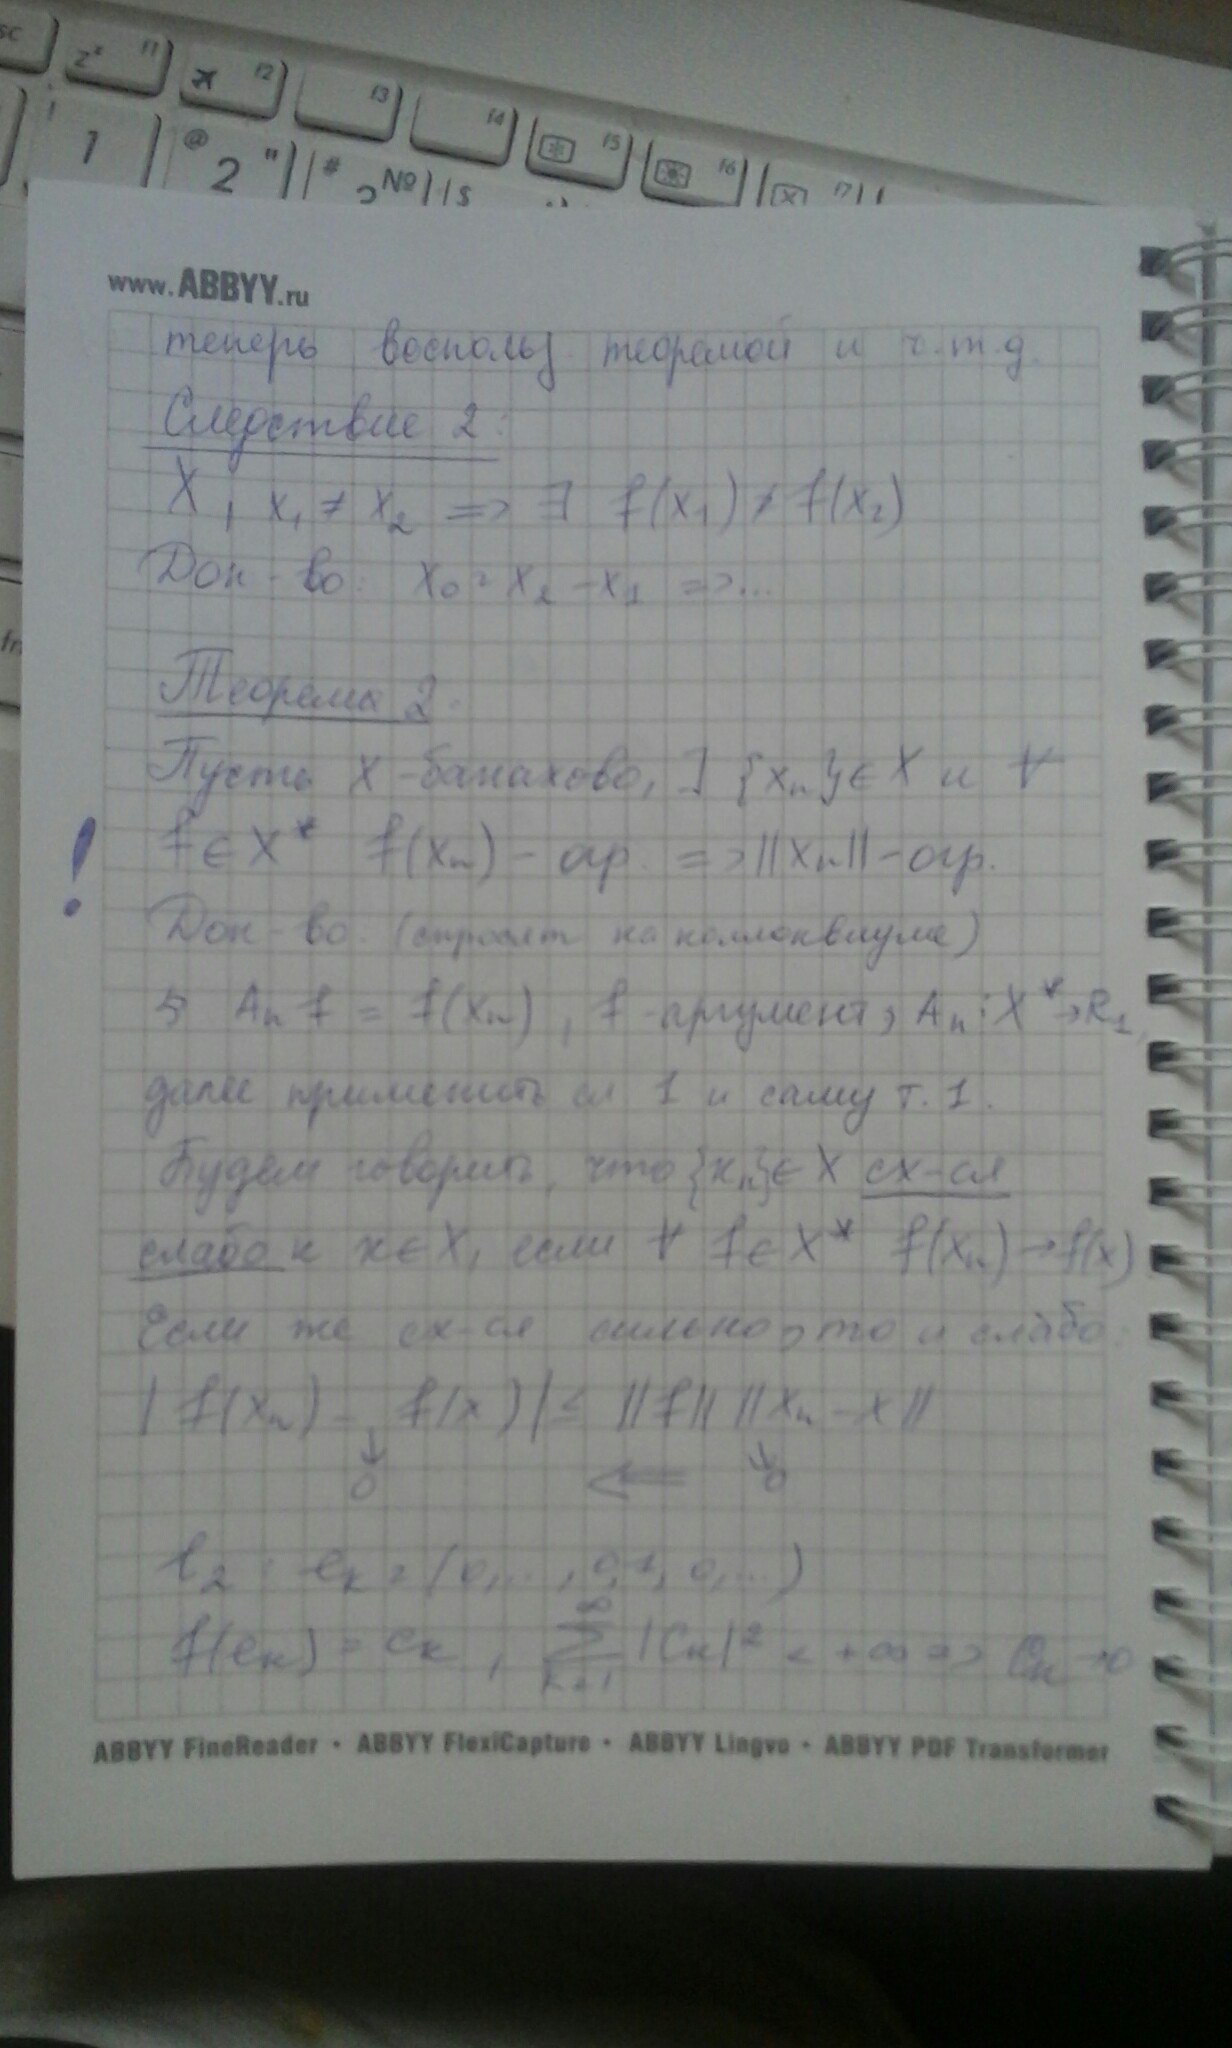 z² f1
f2
f3
f4
f5
f6
1
@ 2 "
# №
www.ABBYY.ru
теперь воспольз теоремой и ч.т.д.
Следствие 2:
X, x₁ ≠ x₂ => ∃ f(x₁) ≠ f(x₂)
Док-во: x₀ = x₂ - x₁ => ...
Теорема 2.
Пусть X - банахово, ] {xₙ} ∈ X и ∀
! f ∈ X* f(xₙ) - огр. => ||xₙ|| - огр.
Док-во. (спросят на коллоквиуме)
Aₙ f = f(xₙ), f - аргумент, Aₙ: X* → R₁,
далее применить сл 1 и саму т. 1.
Будем говорить, что {xₙ} ∈ X сх-ся
слабо к x ∈ X, если ∀ f ∈ X* f(xₙ) → f(x)
Если же сх-ся сильно, то и слабо:
| f(xₙ) - f(x) | ≤ ||f|| ||xₙ - x||
↓ 0 <= ↓ 0
l₂: eₖ = (0, ..., 0, 1, 0, ...)
f(eₖ) = cₖ, ∑ₖ₌₁^∞ |cₖ|² < +∞ => cₖ → 0
ABBYY FineReader • ABBYY FlexiCapture • ABBYY Lingvo • ABBYY PDF Transformer